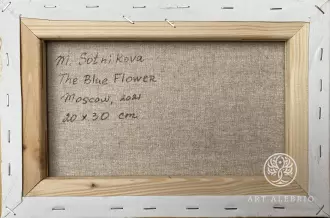 M. Sotnikova
The Blue Flower
Moscow, 2021
20 x 30 cm
ART ALEBRIO